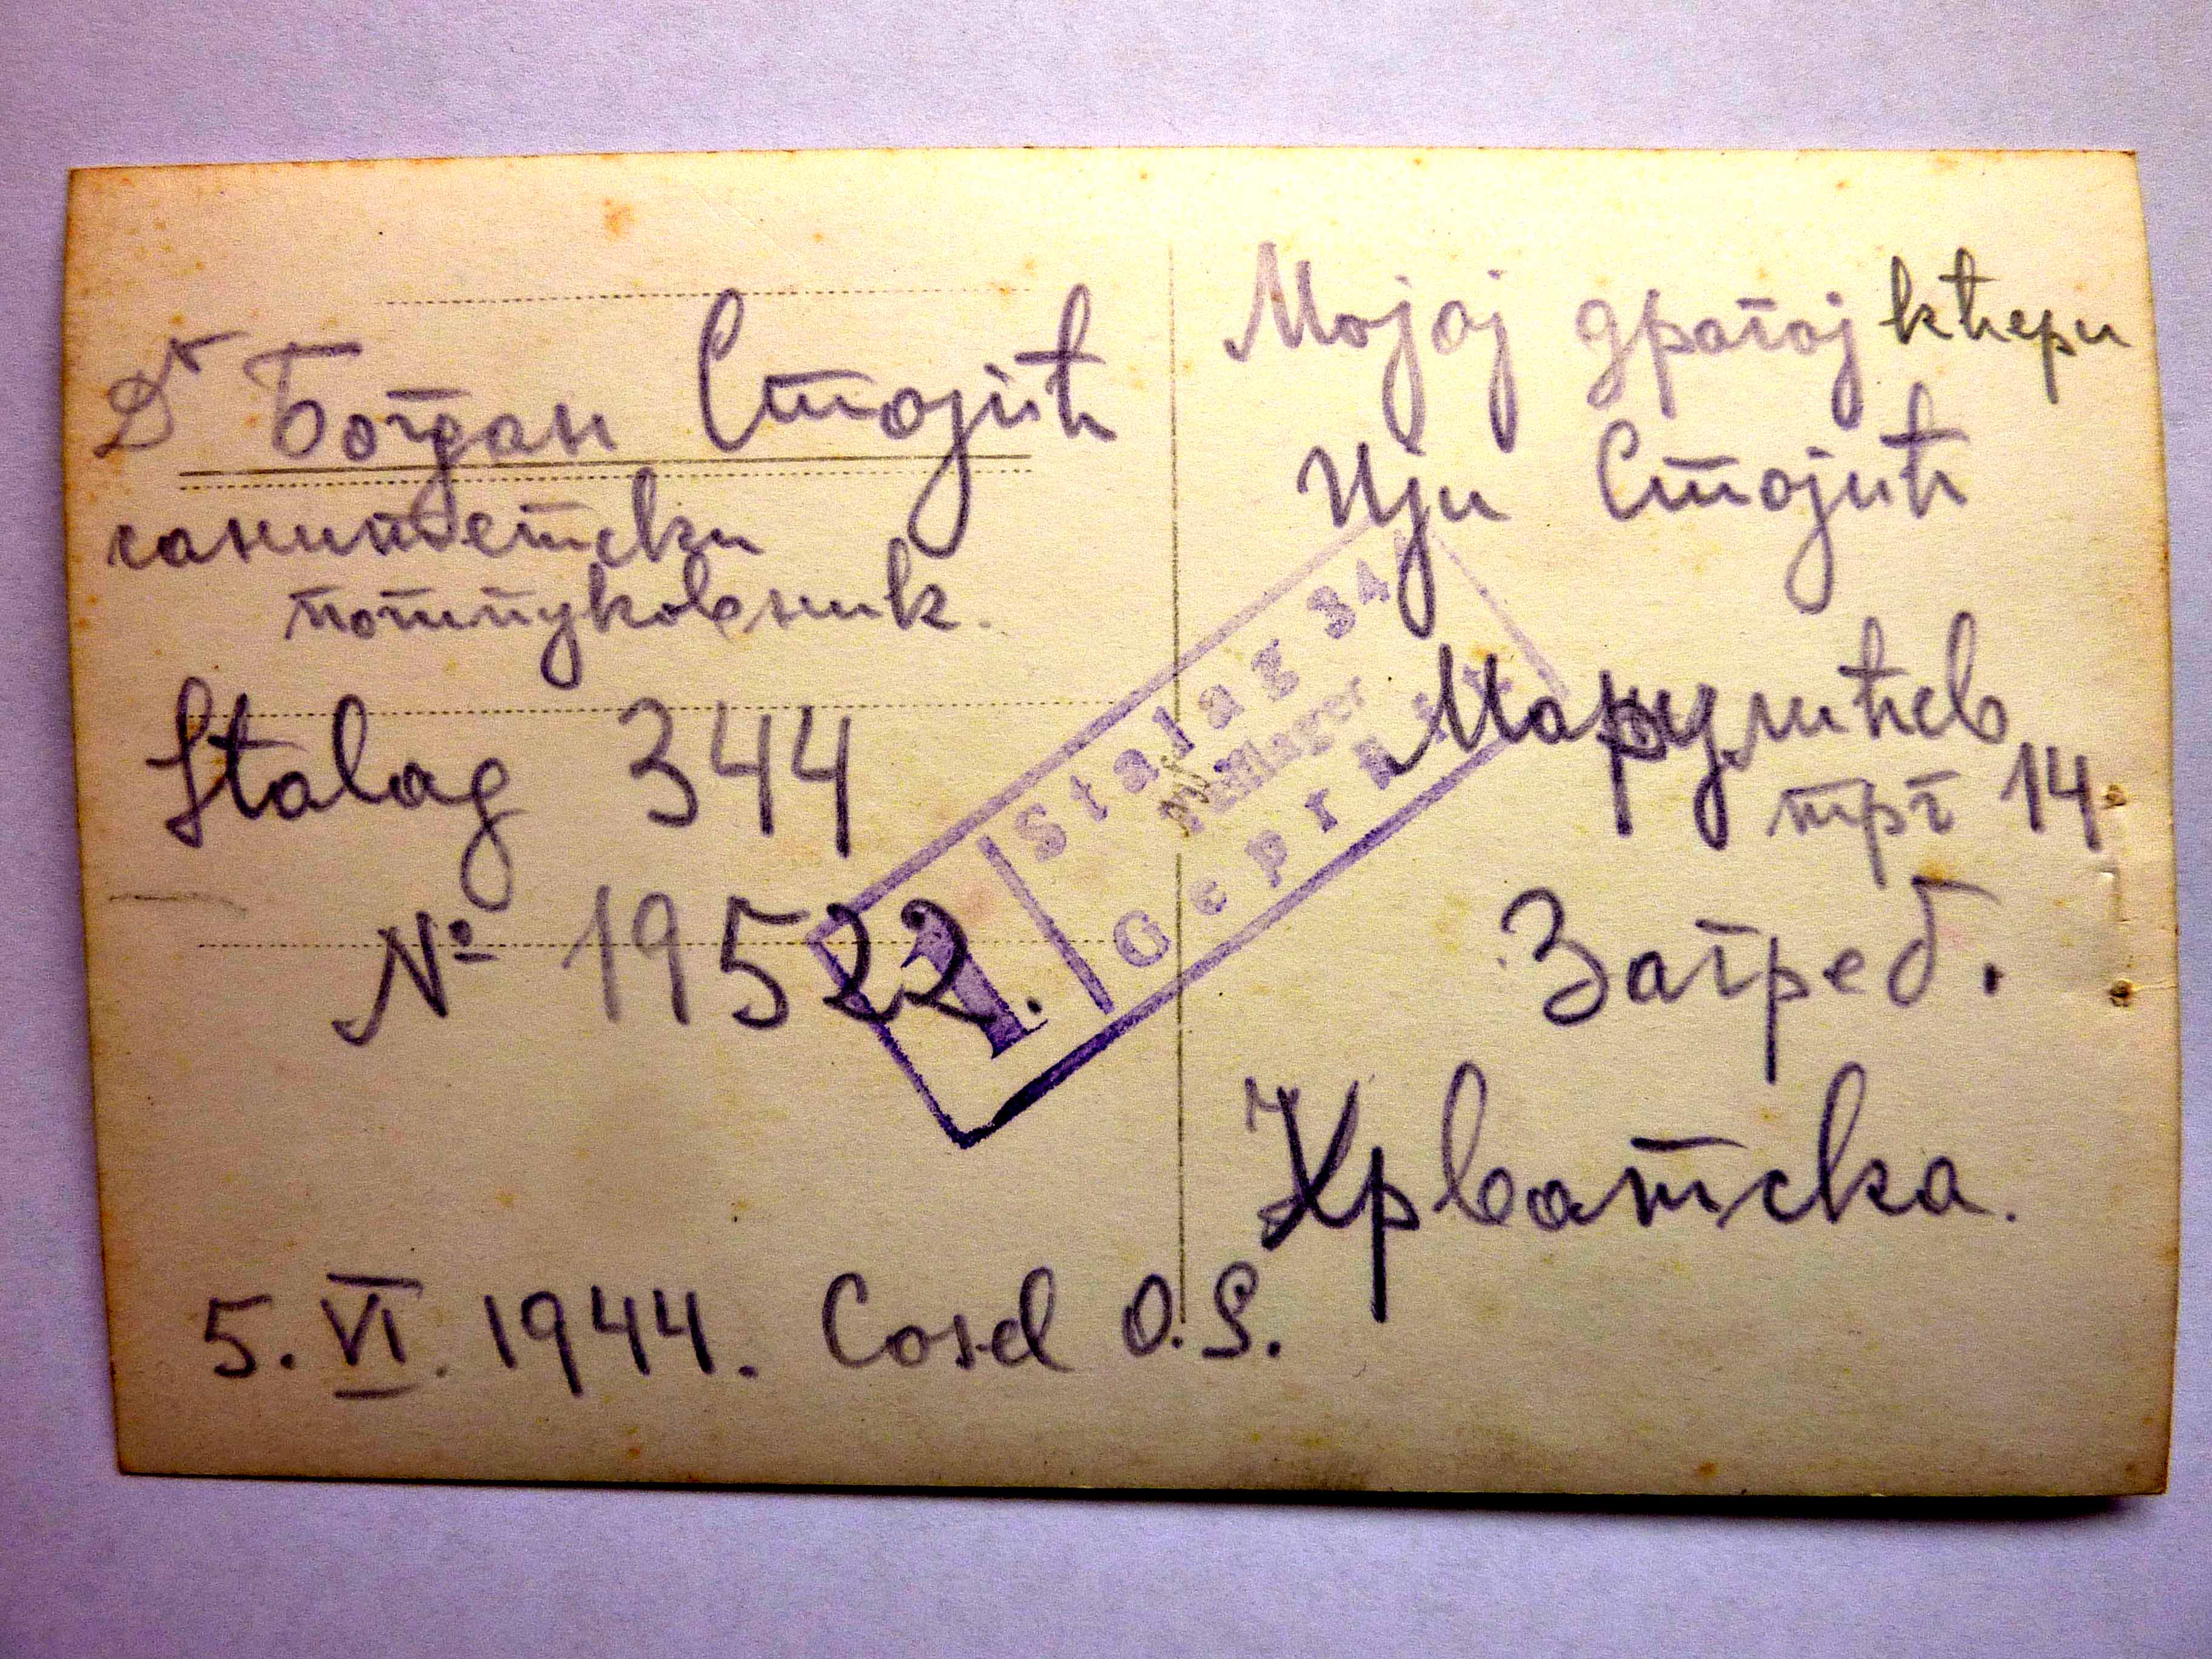 Dr Богдан Стојић
санитетски
потпуковник.
Stalag 344
№ 19522.
5. VI. 1944. Cosel O.S.
Мојој драгој кћери
Ији Стојић
Марулићев
трг 14.
Загреб.
Хрватска.
Stalag 344
Geprüft
1